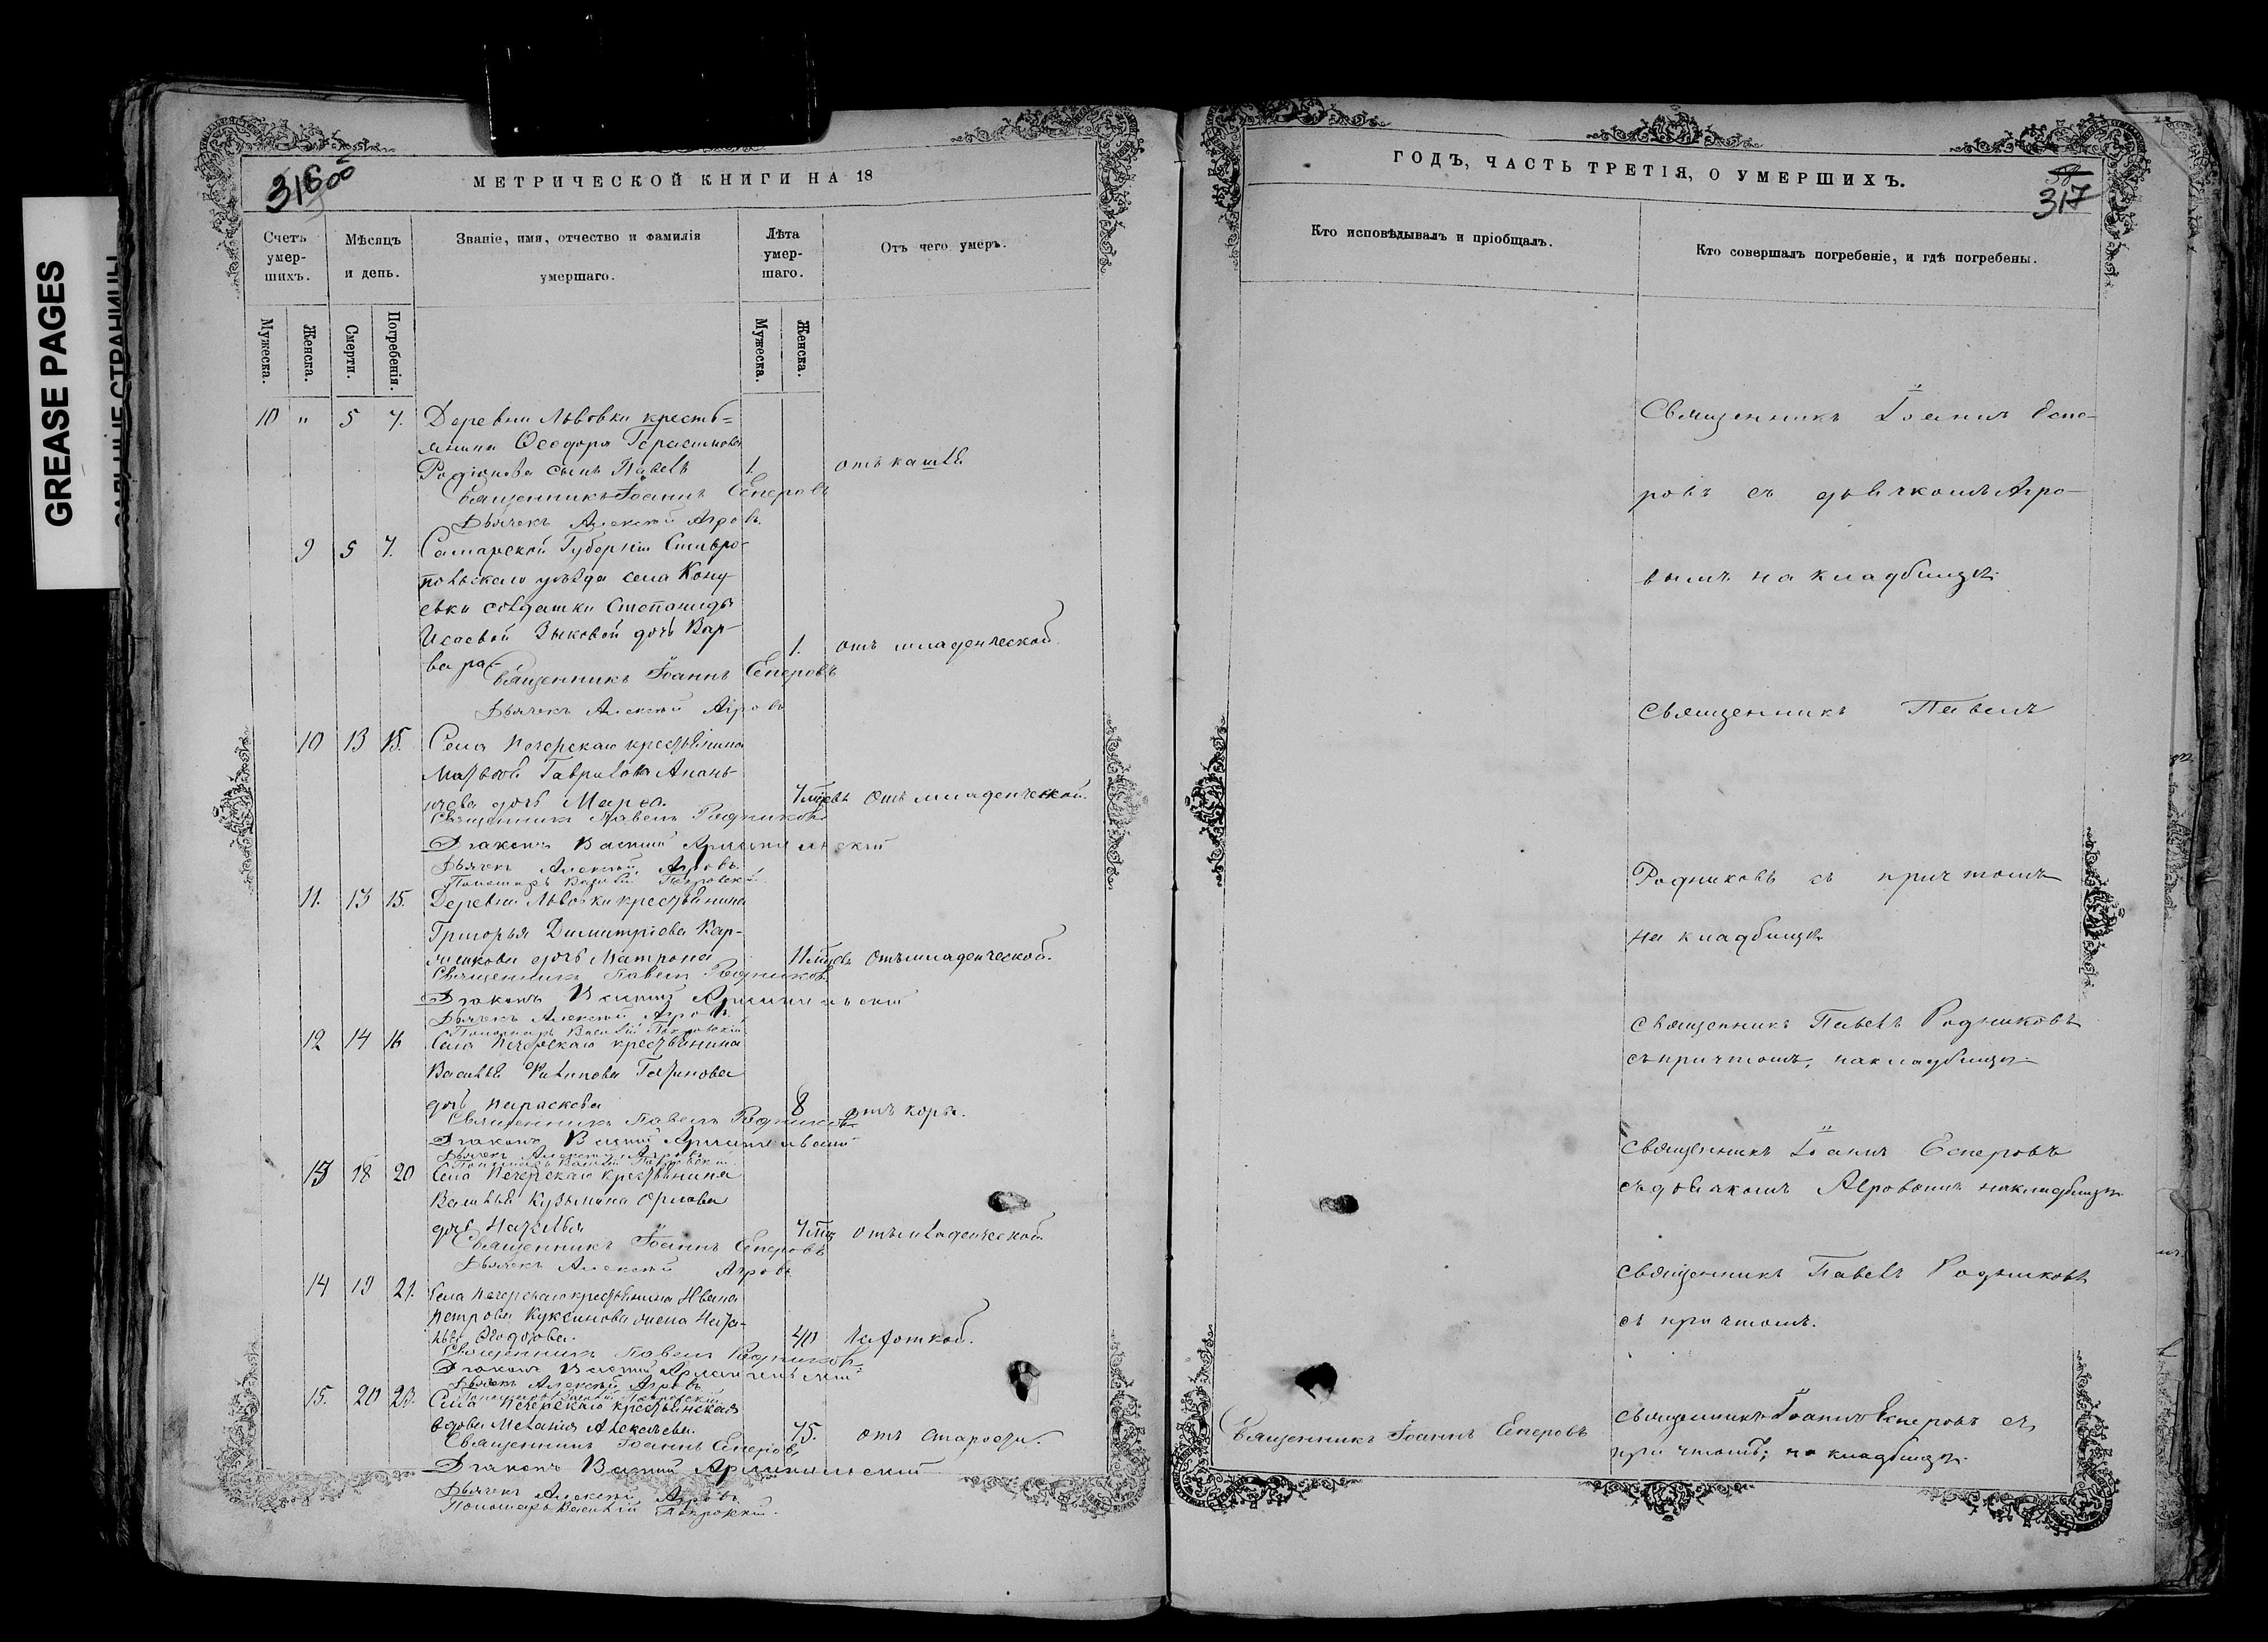 GREASE PAGES
316
МЕТРИЧЕСКОЙ КНИГИ НА 18
Счетъ умер-шихъ.
Мѣсяцъ и день.
Званіе, имя, отчество и фамилія умершаго.
Лѣта умер-шаго.
Отъ чего умеръ.
Мужеска.
Женска.
Смерти.
Погребенія.
Мужеска.
Женска.
10 " 5 7. Деревни Львовки кресть=
янина Ѳеодора Герасимова
Родіонова сынъ Павелъ 1. отъ кашля
Священникъ Іоаннъ Есперовъ
Дьячекъ Алексѣй Агровъ.
9 5 7. Самарской Губерніи Ставро-
польскаго уѣзда села
солдатки Степаниды
Исаевой Зыковой дочь Вар- 1. отъ младенческой.
вара.
Священникъ Іоаннъ Есперовъ
Дьячекъ Алексѣй Агровъ
10 13 15. Села Печерскаго крестьянина
Матвѣя Гаврилова Анань-
ичева дочь Марѳа. отъ младенческой.
Священникъ Павелъ Родниковъ
Діаконъ
Дьячекъ Алексѣй Агровъ.
Пономарь Василій Покровскій.
11. 13 15. Деревни Львовки крестьянина
Григорья Димитріева Кар-
дочь Матрона отъ младенческой.
Священникъ Павелъ Родниковъ
Діаконъ
Дьячекъ Алексѣй Агровъ.
Пономарь Василій Покровскій.
12 14 16 Села Печерскаго крестьянина
Василья Филипова
дочь Параскева 8 отъ кори.
Священникъ Павелъ Родниковъ
Діаконъ
Дьячекъ Алексѣй Агровъ
Пономарь Василій Покровскій
13 18 20 Села Печерскаго крестьянина
Василья Кузьмина Орлова
дочь Наталья отъ младенческой.
Священникъ Іоаннъ Есперовъ
Дьячекъ Алексѣй Агровъ
14 19 21. Села Печерскаго крестьянина Ивана
Петрова жена Ната-
лья Ѳеодорова. 40 чахоткой.
Священникъ Павелъ Родниковъ
Діаконъ
Дьячекъ Алексѣй Агровъ
Пономарь Василій Покровскій
15. 20 23. Села Печерскаго крестьянская
вдова Меланія Алексѣева. 75. отъ старости.
Священникъ Іоаннъ Есперовъ
Діаконъ
Дьячекъ Алексѣй Агровъ
Пономарь Василій Покровскій.
ГОДЪ, ЧАСТЬ ТРЕТІЯ, О УМЕРШИХЪ.
317
Кто исповѣдывалъ и пріобщалъ.
Кто совершалъ погребеніе, и гдѣ погребены.
Священникъ Іоаннъ Еспе-
ровъ съ дьячкомъ Агро-
вымъ на кладбищѣ.
Священникъ Павелъ
Родниковъ съ причтомъ
на кладбищѣ
Священникъ Павелъ Родниковъ
съ причтомъ, на кладбищѣ.
Священникъ Іоаннъ Есперовъ
съ дьячкомъ Агровымъ на кладбищѣ
Священникъ Павелъ Родниковъ
съ причтомъ.
Священникъ Іоаннъ Есперовъ
Священникъ Іоаннъ Есперовъ съ
причтомъ; на кладбищѣ.